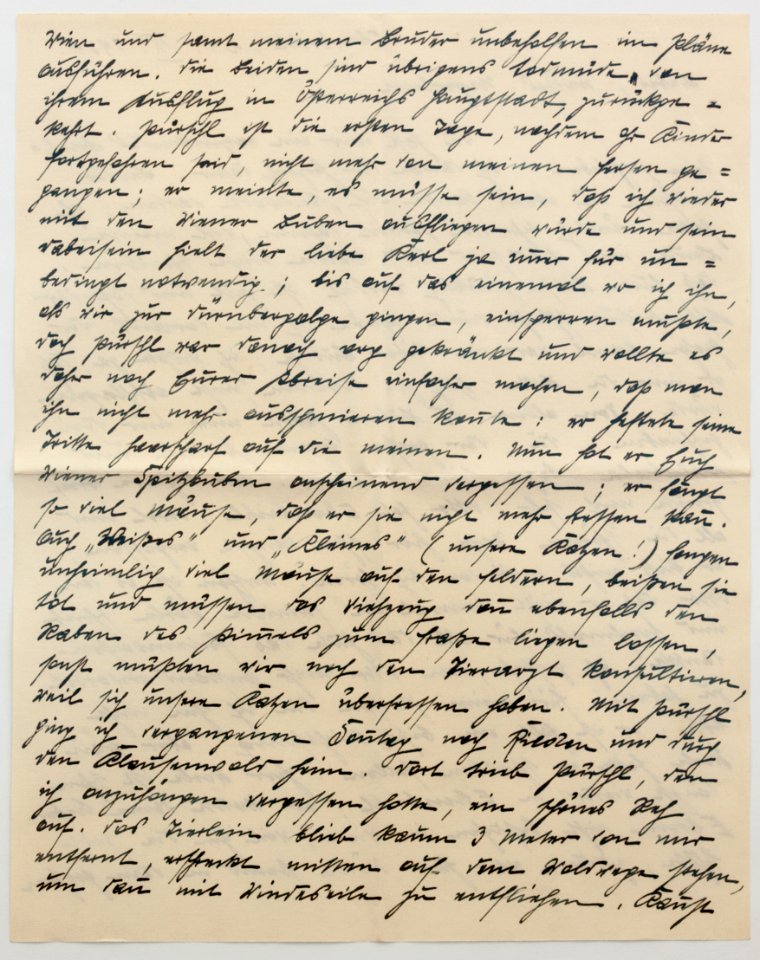 Wien und samt meinem Bruder unbeholfen im Pläne
ausführen. Die beiden sind übrigens todmüde von
ihrem Ausflug in Österreichs Hauptstadt, zurückge =
kehrt. Purschl ist die ersten Tage, nachdem Ihr Kinder
fortgefahren seid, nicht mehr von meinen Fersen ge =
gangen; er meinte, es müsse sein, daß ich wieder
mit den Wiener Buben ausfliegen würde und sein
Dabeisein hielt der liebe Kerl ja immer für un =
bedingt notwendig; bis auf das einemal wo ich ihn,
als wir zur gingen, einsperren mußte,
doch Purschl war danach arg gekränkt und wollte es
daher nach Eurer Abreise einfacher machen, daß man
ihn nicht mehr ausschmieren konnte: er heftete seine
Tritte haarscharf auf die meinen. Nun hat er Euch
Wiener Spitzbuben anscheinend vergessen; er fängt
so viel Mäuse, daß er sie nicht mehr fressen kann.
Auch „Weißes" und „Kleines" (unsere Katzen!) fangen
unheimlich viel Mäuse auf den Feldern, beißen sie
tot und müssen das Viehzeug dann ebenfalls den
Raben des Himmels zum Fraße liegen lassen,
sonst müßten wir noch den Tierarzt konsultieren,
weil sich unsere Katzen überfressen haben. Mit Purschl
ging ich vergangenen Sonntag nach Rieden und durch
den Klausenwald heim. Dort trieb Purschl, den
ich anzuhängen vergessen hatte, ein schönes Reh
auf. Das Tierlein blieb kaum 3 Meter von mir
entfernt, erschreckt mitten auf dem Waldwege stehen,
um dann mit Windeseile zu entfliehen.